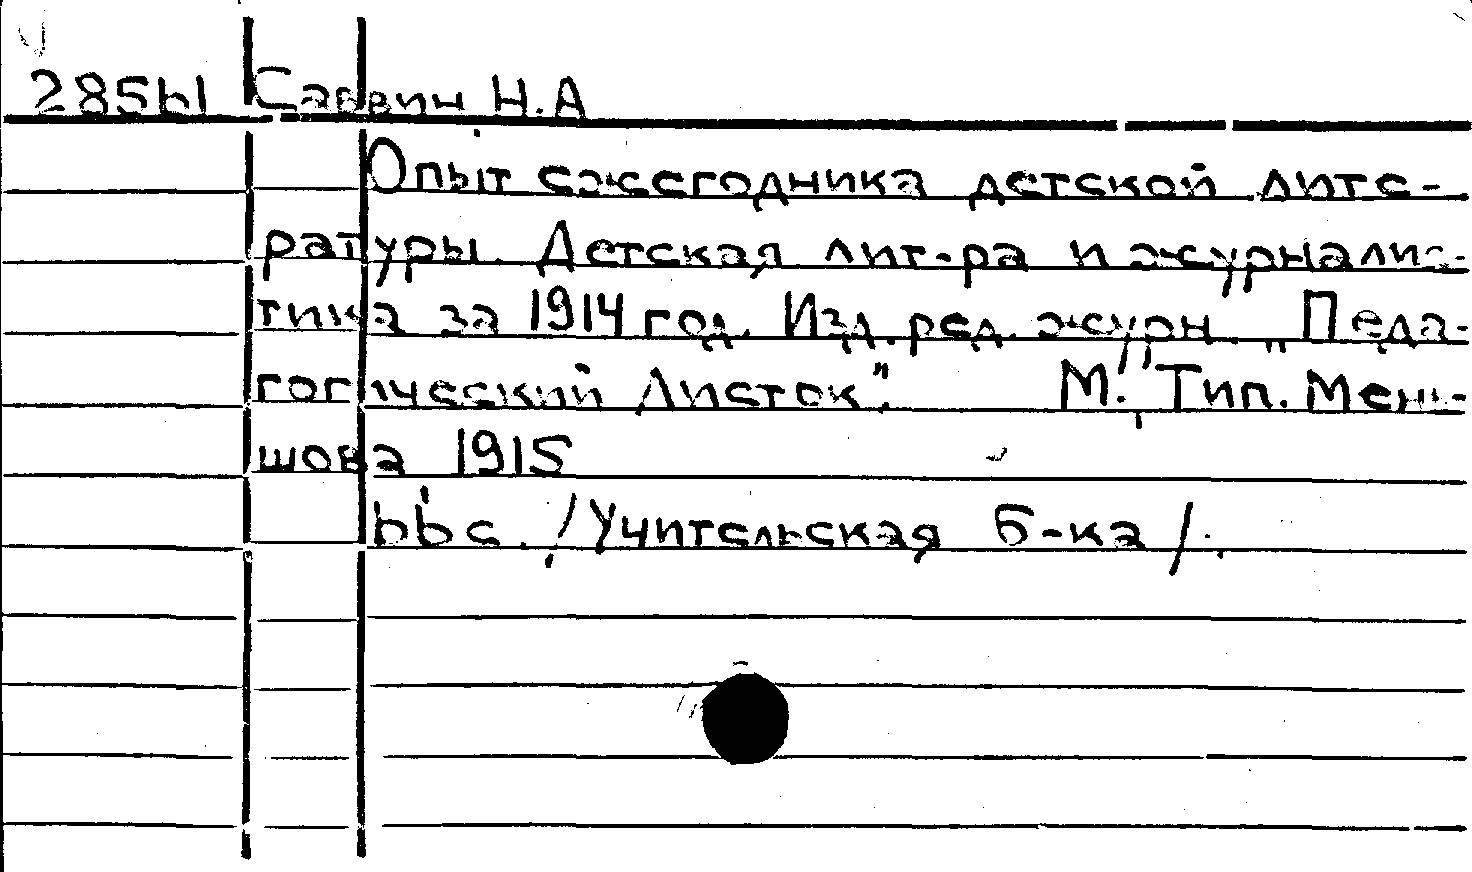 285Ы Саввин Н.А
Опыт ежегодника детской лите-
ратуры. Детская лит-ра и журналис-
тика за 1914 год. Изд. ред. журн. „Педа-
гогический Листок". М., Тип. Мень-
шова 1915
ььс. /Учительская б-ка/.